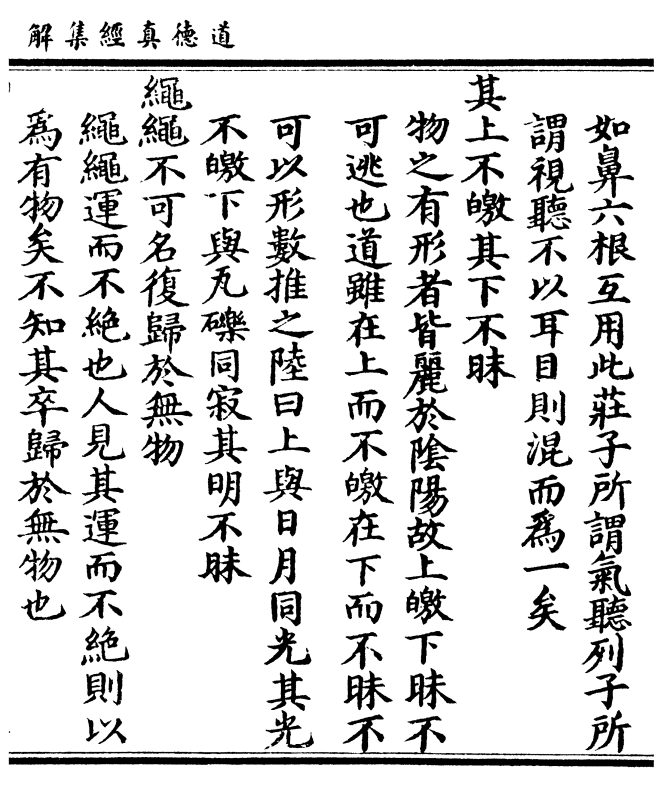 道德真經集解
如鼻六根互用此莊子所謂氣聽列子所
謂視聽不以耳目則混而爲一矣
其上不皦其下不昧
物之有形者皆麗於陰陽故上皦下昧不
可逃也道雖在上而不皦在下而不昧不
可以形數推之陸曰上與日月同光其光
不皦下與瓦礫同寂其明不昧
繩繩不可名復歸於無物
繩繩運而不絕也人見其運而不絕則以
爲有物矣不知其卒歸於無物也